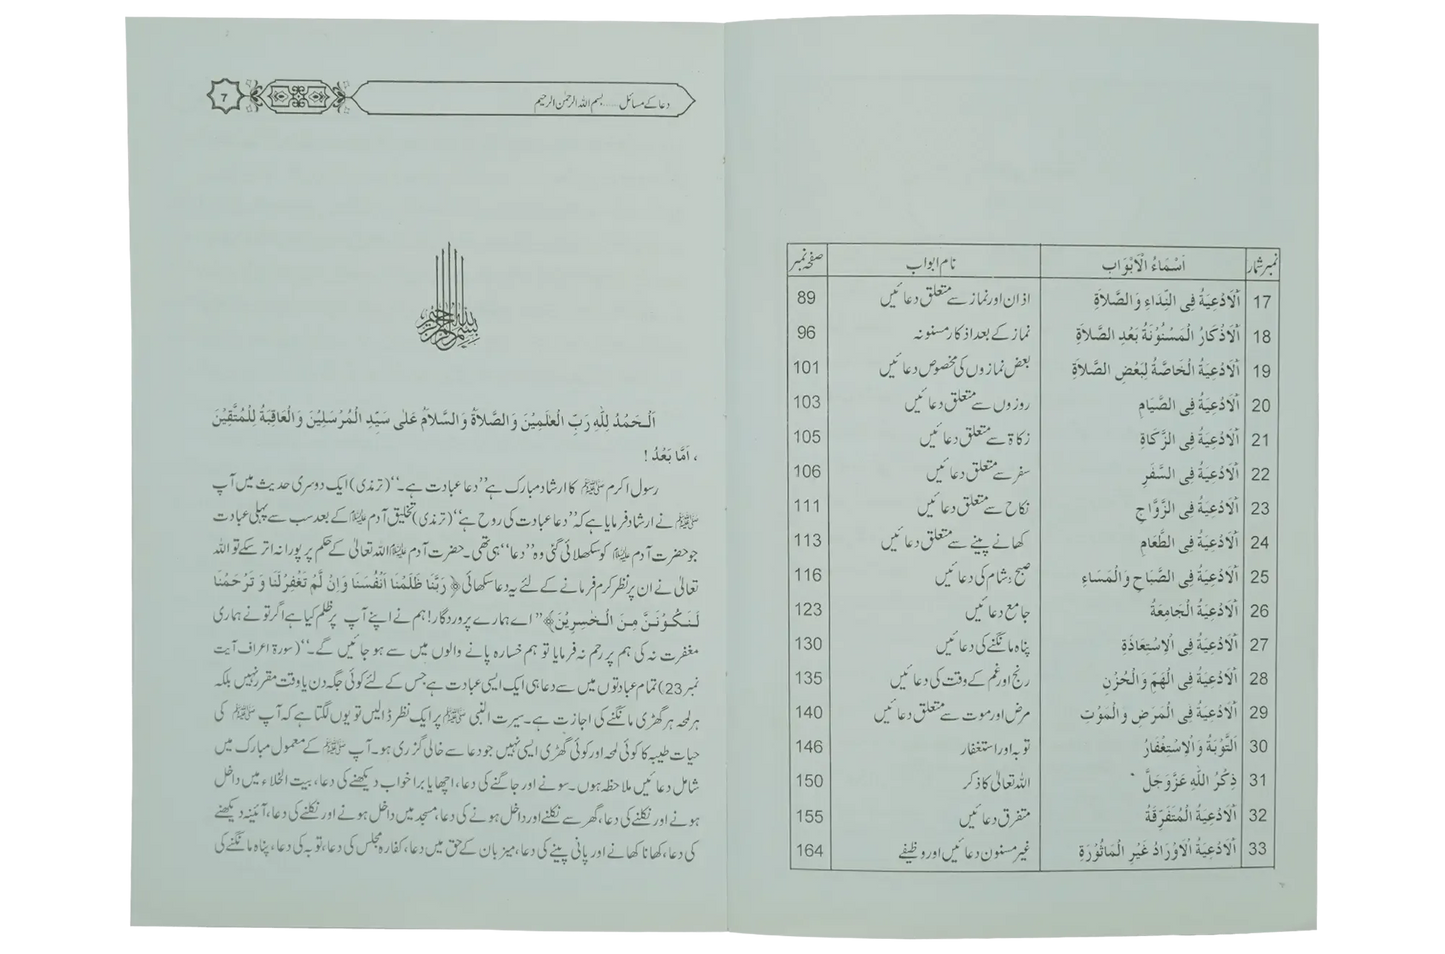 نمبر شمار اَسْمَاءُ الْاَبْوَاب نام ابواب صفحہ نمبر
17 اَلْاَدْعِيَةُ فِى النِّدَاءِ وَالصَّلاَةِ اذان اور نماز سے متعلق دعائیں 89
18 اَلْاَذْكَارُ الْمَسْنُوْنَةُ بَعْدِ الصَّلاَةِ نماز کے بعد اذکار مسنونہ 96
19 اَلْاَدْعِيَةُ الْخَاصَّةُ لِبَعْضِ الصَّلاَةِ بعض نمازوں کی مخصوص دعائیں 101
20 اَلْاَدْعِيَةُ فِى الصِّيَامِ روزوں سے متعلق دعائیں 103
21 اَلْاَدْعِيَةُ فِى الزَّكَاةِ زکاۃ سے متعلق دعائیں 105
22 اَلْاَدْعِيَةُ فِى السَّفَرِ سفر سے متعلق دعائیں 106
23 اَلْاَدْعِيَةُ فِى الزَّوَّاجِ نکاح سے متعلق دعائیں 111
24 اَلْاَدْعِيَةُ فِى الطَّعَامِ کھانے پینے سے متعلق دعائیں 113
25 اَلْاَدْعِيَةُ فِى الصَّبَاحِ وَالْمَسَاءِ صبح و شام کی دعائیں 116
26 اَلْاَدْعِيَةُ الْجَامِعَةُ جامع دعائیں 123
27 اَلْاَدْعِيَةُ فِى الْاِسْتِعَاذَةِ پناہ مانگنے کی دعائیں 130
28 اَلْاَدْعِيَةُ فِى الْهَمِّ وَالْحُزْنِ رنج اور غم کے وقت کی دعائیں 135
29 اَلْاَدْعِيَةُ فِى الْمَرَضِ والْمَوْتِ مرض اور موت سے متعلق دعائیں 140
30 اَلتَّوْبَةُ وَالْاِسْتِغْفَارُ توبہ اور استغفار 146
31 ذِكْرُ اللّٰهِ عَزَّوَجَلَّ اللہ تعالیٰ کا ذکر 150
32 اَلْاَدْعِيَةُ الْمُتَفَرِّقَةُ متفرق دعائیں 155
33 اَلْاَدْعِيَةُ الْاَوْرَادُ غَيْرِ الْمَاثُوْرَةِ غیر مسنون دعائیں اور وظیفے 164
دعا کے مسائل..... بسم اللہ الرحمٰن الرحیم 7
بسم الله الرحمن الرحيم
اَلْحَمْدُ لِلّٰهِ رَبِّ الْعٰلَمِيْنَ وَالصَّلاَةُ وَالسَّلاَمُ عَلٰى سَيِّدِ الْمُرْسَلِيْنَ وَالْعَاقِبَةُ لِلْمُتَّقِيْنَ
، اَمَّا بَعْدُ !
رسول اکرم ﷺ کا ارشاد مبارک ہے ’’دعا عبادت ہے۔‘‘ (ترمذی) ایک دوسری حدیث میں آپ
ﷺ نے ارشاد فرمایا ہے کہ ’’دعا عبادت کی روح ہے‘‘ (ترمذی) تخلیق آدم علیہ السلام کے بعد سب سے پہلی عبادت
جو حضرت آدم علیہ السلام کو سکھلائی گئی وہ ’’دعا‘‘ ہی تھی۔ حضرت آدم علیہ السلام اللہ تعالیٰ کے حکم پر پورا نہ اتر سکے تو اللہ
تعالیٰ نے ان پر نظر کرم فرمانے کے لئے یہ دعا سکھائی ﴿ رَبَّنَا ظَلَمْنَا اَنْفُسَنَا وَاِنْ لَّمْ تَغْفِرْلَنَا وَ تَرْحَمْنَا
لَنَكُوْنَنَّ مِنَ الْخٰسِرِيْنَ﴾ ’’اے ہمارے پروردگار! ہم نے اپنے آپ پر ظلم کیا ہے اگر تو نے ہماری
مغفرت نہ کی ہم پر رحم نہ فرمایا تو ہم خسارہ پانے والوں میں سے ہو جائیں گے۔‘‘ (سورۃ اعراف آیت
نمبر 23) تمام عبادتوں میں سے دعا ہی ایک ایسی عبادت ہے جس کے لئے کوئی جگہ دن یا وقت مقرر نہیں بلکہ
ہر لمحہ ہر گھڑی مانگنے کی اجازت ہے۔ سیرت النبی ﷺ پر ایک نظر ڈالیں تو یوں لگتا ہے کہ آپ ﷺ کی
حیات طیبہ کا کوئی لمحہ اور کوئی گھڑی ایسی نہیں جو دعا سے خالی گزری ہو۔ آپ ﷺ کے معمول مبارک میں
شامل دعائیں ملاحظہ ہوں۔ سونے اور جاگنے کی دعا، اچھا یا برا خواب دیکھنے کی دعا، بیت الخلاء میں داخل
ہونے اور نکلنے کی دعا، گھر سے نکلنے اور داخل ہونے کی دعا، مسجد میں داخل ہونے اور نکلنے کی دعا، آئینہ دیکھنے
کی دعا، کھانا کھانے اور پانی پینے کی دعا، میزبان کے حق میں دعا، کفارہ مجلس کی دعا، توبہ کی دعا، پناہ مانگنے کی